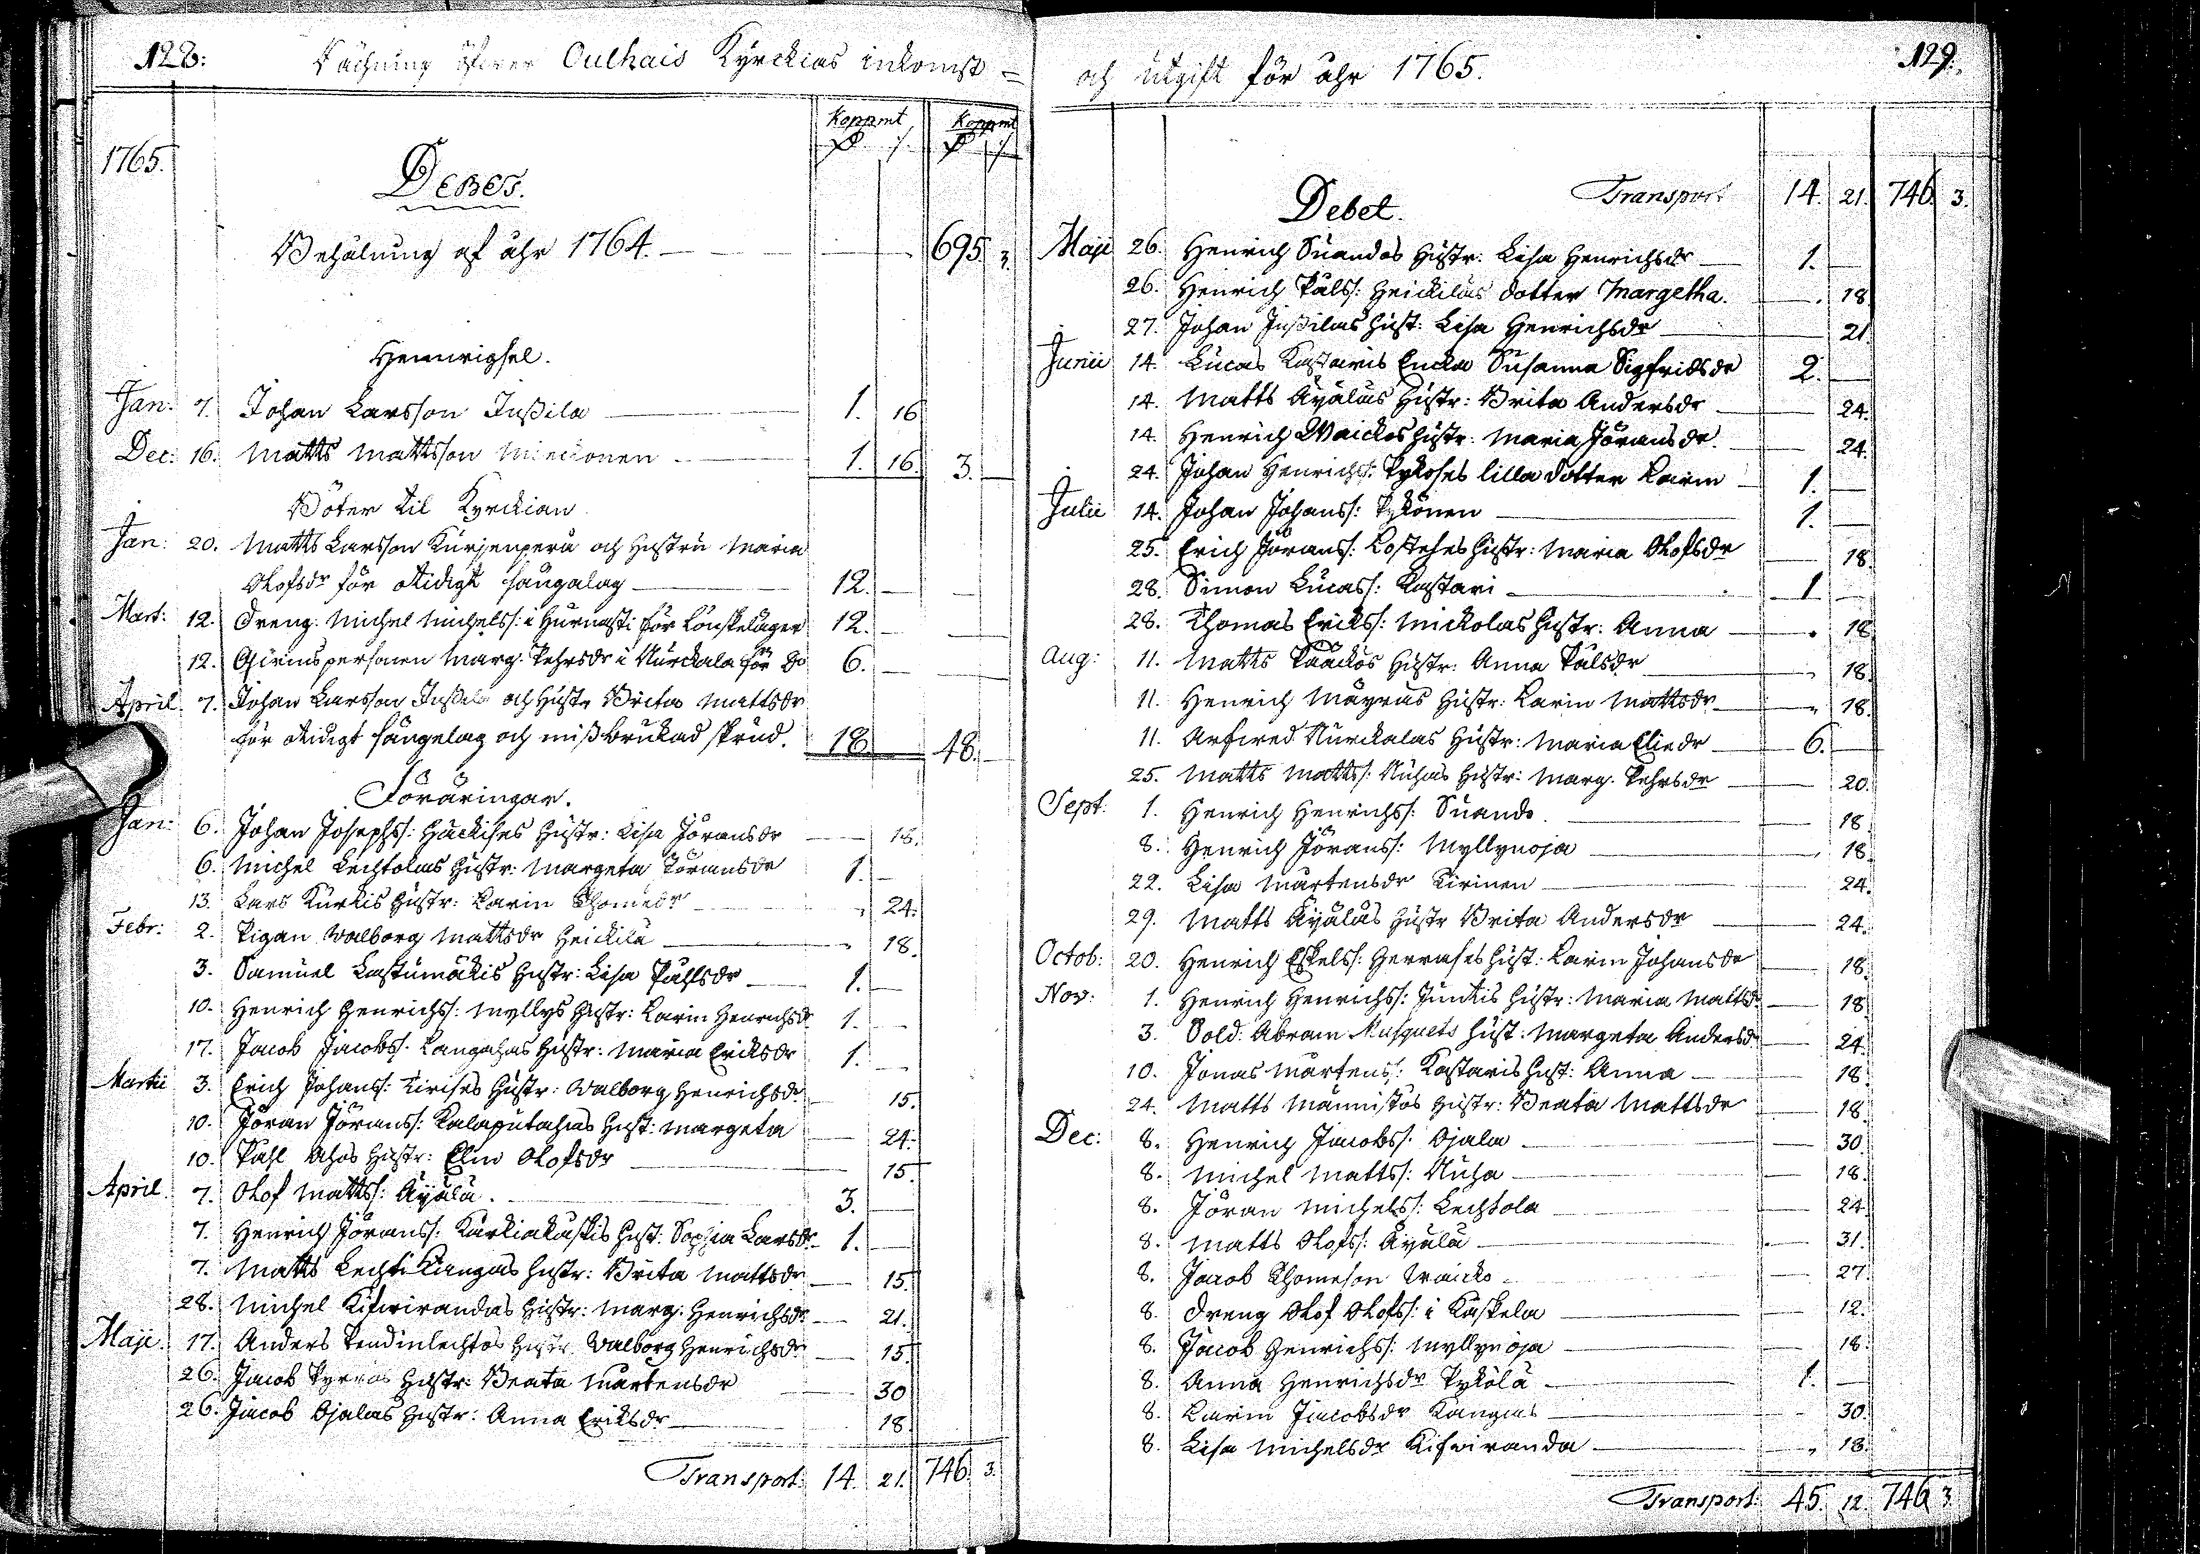 128:
Rächning öfwer Oulhais Kyrckias inkomst =
Koppmt Koppmt
1765.
Debet.
Behålning af åhr 1764. 695 3.
Hemwigsel.
Jan: 7. Johan Larsson Jußila 1. 16
Dec: 16. Matts Mattsson 1. 16. 3.
Böter til Kyrckian
Jan: 20. Matts Larsson Kurjenperä och Hustru Maria
Olofsdr för otidigt sängalag 12.
Mart: 12. Dreng: Michel Michelss: i Hurnasti för Lönskeläger 12.
12. Qwinspersonen Marg. Pehrsdr i Nurckala för Do 6.
April 7. Johan Larsson Jußila och Hustr Brita Mattsdr
för otidigt sängelag och mißbrukad skrud. 18 48.
Föräringar.
Jan: 6. Johan Josephss: Häckises Hustr: Lisa Jöransdr 18.
6. Michel Lechtolas Hustr: Margeta Jöransdr 1.
13. Lars Kurkis Hustr: Karin Thomedr 24.
Febr: 2. Pigan Walborg Mattsdr Heickilä 18.
3. Samuel Kastumäkis Hustr: Lisa Påhlsdr 1.
10. Henrich Henrichss: Myllys Hustr: Karin Henrichsdr 1.
17. Jacob Jacobss: Kangahas Hustr: Maria Eriksdr 1.
Martii 3. Erich Johanss: Kirises Hustr: Walborg Henrichsdr 15.
10. Jöran Jöranss: Kalaputahas Hust: Margeta 24.
10. Påhl Ahos Hustr: Elin Olofsdr 15.
April 7. Olof Mattss: Äyälä. 3.
7. Henrich Jöranss: Kurkiakaskis Hust: Sophia Larsdr 1.
7. Matts Lechti Kangas Hustr: Brita Mattsdr 15.
28. Michel Kifwirandas Hustr: Marg: Henrichsdr 21.
Maji 17. Anders Pendinlechtos Hustr Walborg Henrichsdr 15.
26. Jacob Hustr: Beata Mårtensdr 30
26. Jacob Ojalas Hustr: Anna Eriksdr 18.
Transport: 14. 21. 746. 3.
och utgift för åhr 1765.
129.
Debet. Transport 14. 21. 746. 3.
Maji 26. Henrich Suandos Hustr: Lisa Henrichsdr 1.
26. Henrich Pålss: Heickiläs dotter Margetha. 18
27. Johan Jußilas Hust: Lisa Henrichsdr 21
Junii 14. Lucas Kastaris Encka Susanna Sigfridsdr 2.
14. Matts Äyäläs Hustr: Brita Andersdr 24.
14. Henrich Waickos Hustr: Maria Jöransdr. 24.
24. Johan Henrichss: Pyköses lilla dotter Karin 1.
Julii 14. Johan Johanss: Pykönen 1.
25. Erich Jöranss: Kostehes Hustr: Maria Olofsdr 18.
28. Simon Lucass: Kastari 1
28. Thomas Erikss: Mickolas Hustr: Anna 18
Aug: 11. Matts Pääckös Hustr: Anna Pålsdr 18.
11. Henrich Mäyräs Hustr: Karin Mattsdr 18.
11. Arfwed Nurckalas Hustr: Maria Eliedr 6.
25. Matts Mattss: Nuhas Hustr: Marg. Pehrsdr 20.
Sept: 1. Henrich Henrichss: Suando. 18
8. Henrich Jöranss: Myllynoja 18.
22. Lisa Mårtensdr Kirinen 24.
29. Matts Äyäläs Hustr Brita Andersdr 24.
Octob: 20. Henrich Eskelss: Herrases Hust: Karin Johansdr 18.
Nov: 1. Henrich Henrichss: Juntis Hustr: Maria Mattsdr 18.
3. Sold: Abram Musquets Hust: Margeta Andersdr 24.
10. Jonas Mårtens: Kastaris Hust: Anna 18.
24. Matts Männistös Hustr: Beata Mattsdr 18.
Dec: 8. Henrich Jacobss: Ojala 30.
8. Michel Mattss: Nuha 18.
8. Jöran Michelss: Lechtola 24
8. Matts Olofss: Äyälä 31.
8. Jacob Thomeson Waicko 27.
8. Dreng Olof Olofss: i Kaskela 12.
8. Jacob Henrichss: Myllynoja 18.
8. Anna Henrichsdr Pykölä 1.
8. Karin Jacobsdr Kangas 30.
8. Lisa Michelsdr Kifwiranda 18.
Transport: 45. 12. 746 3.